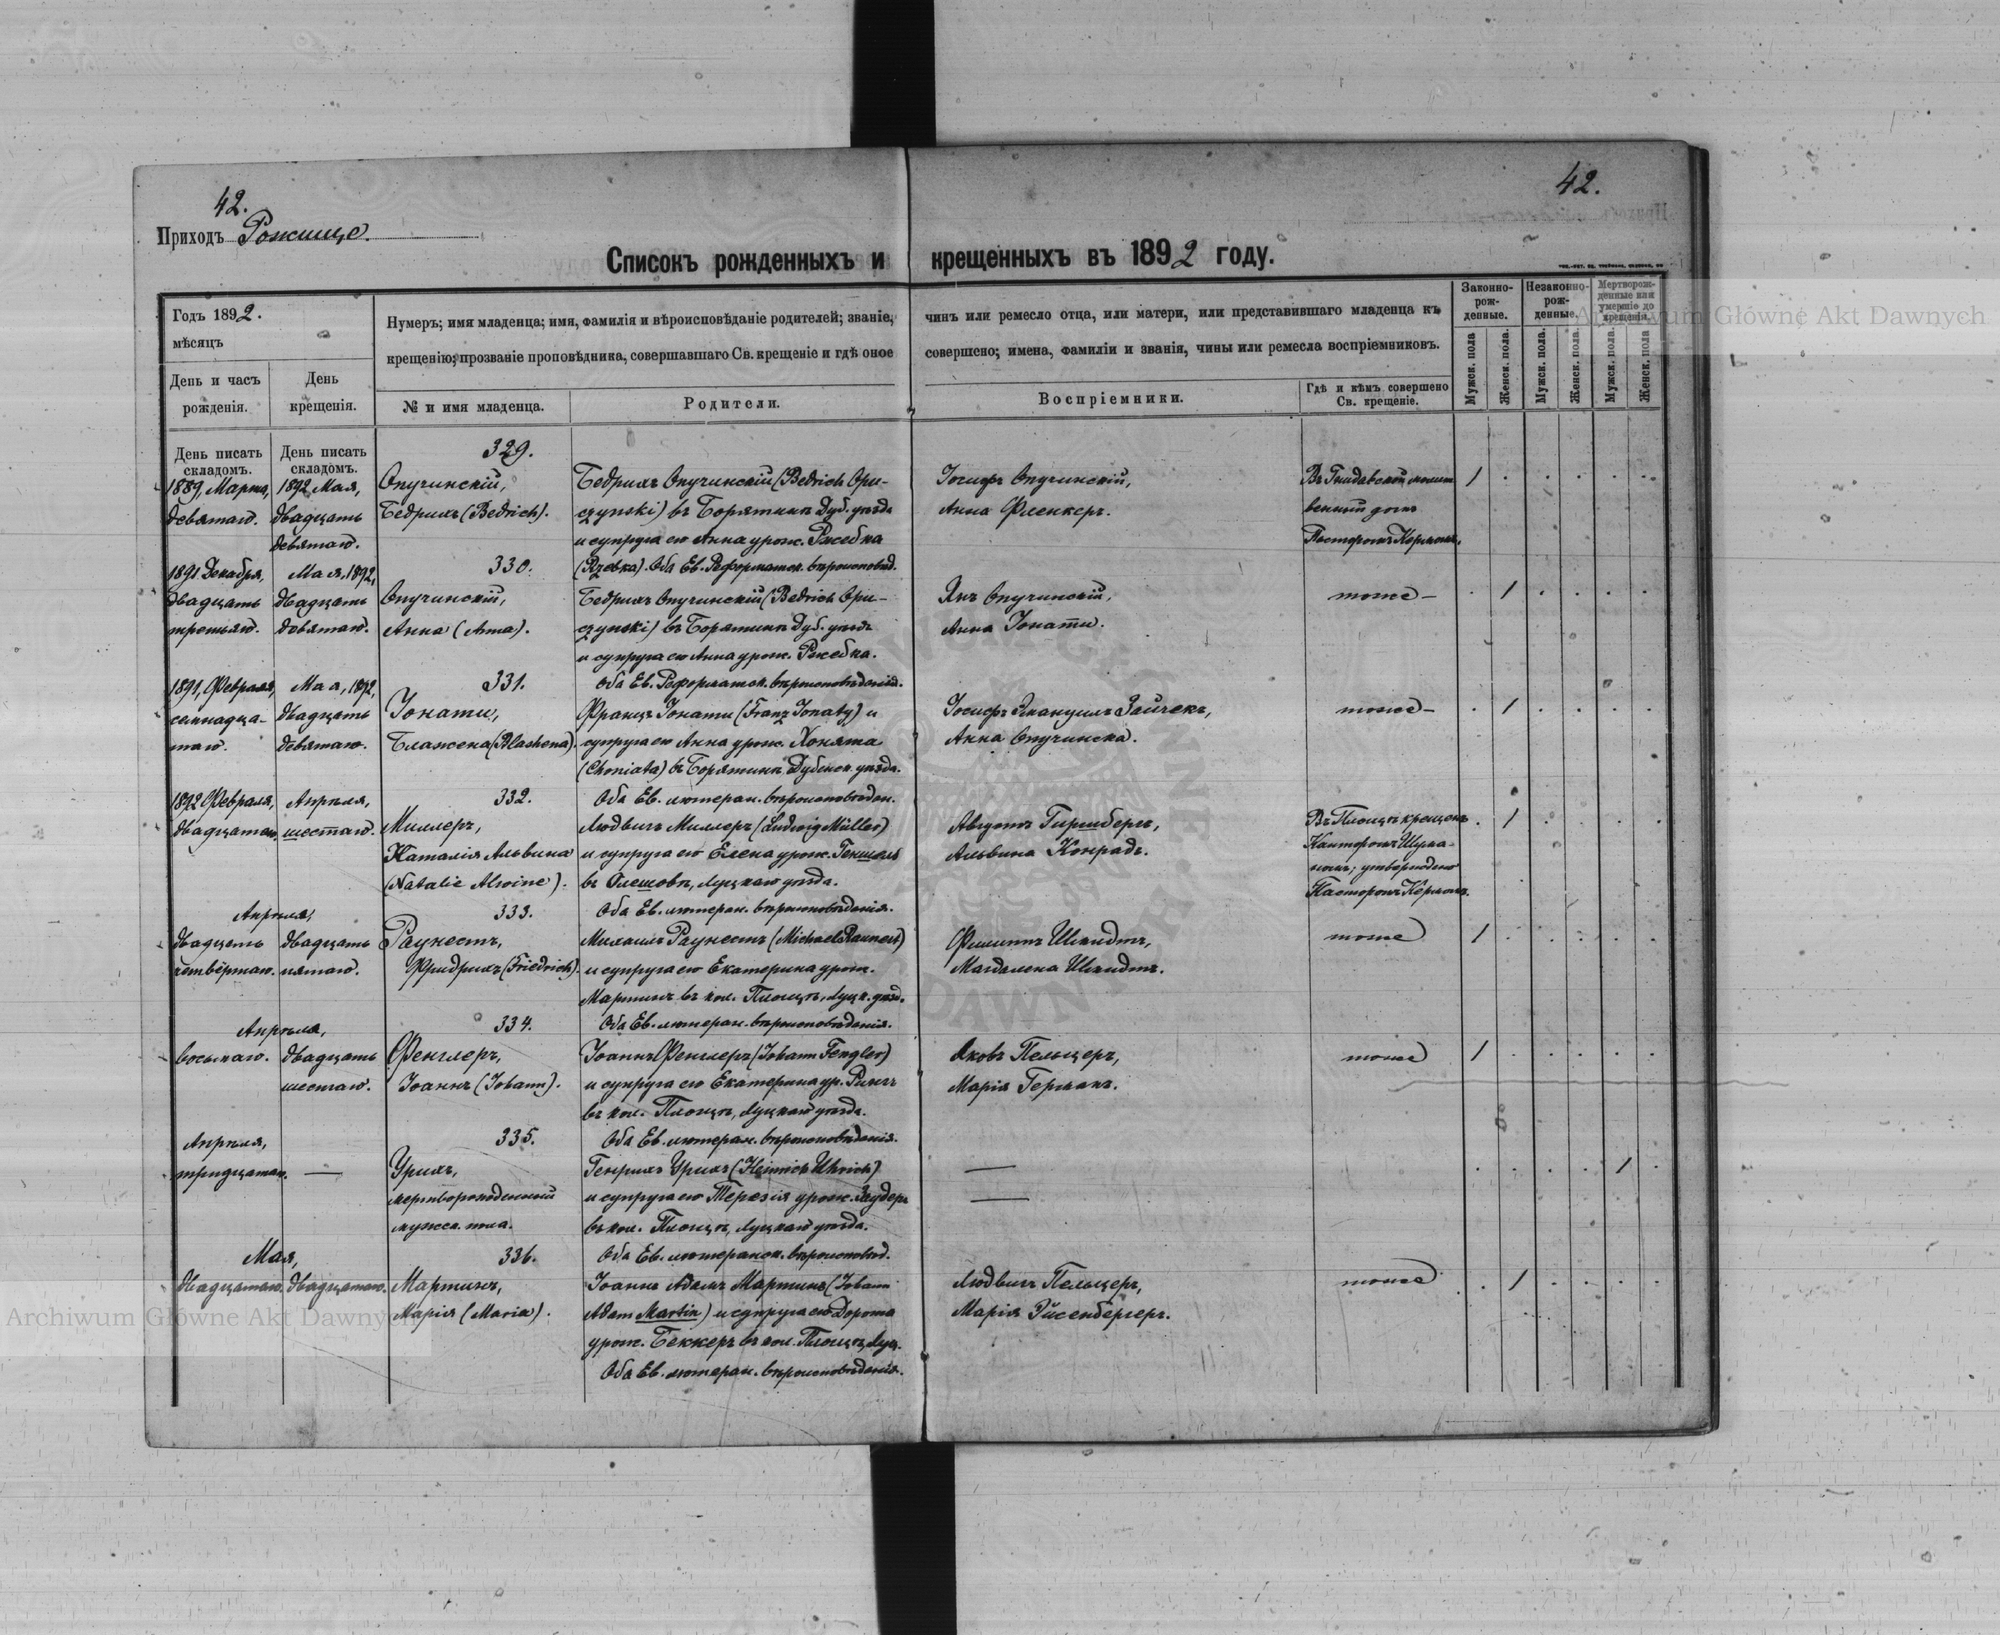 42.
42.
Приходъ Рожище.
Списокъ рожденныхъ и крещенныхъ въ 1892 году.
Годъ 1892.
мѣсяцъ
День и часъ рожденія.
День крещенія.
Нумеръ; имя младенца; имя, фамилія и вѣроисповѣданіе родителей; званіе, чинъ или ремесло отца, или матери, или представившаго младенца къ
крещенію; прозваніе проповѣдника, совершавшаго Св. крещеніе и гдѣ оное совершено; имена, фамиліи и званія, чины или ремесла воспріемниковъ.
№ и имя младенца.
Родители.
Воспріемники.
Гдѣ и кѣмъ совершено Св. крещеніе.
Законно-рож-денные.
Незаконно-рож-денные.
Мертворож-денные или умершіе до крещенія.
Мужск. пола
Женск. пола.
Мужск. пола.
Женск. пола.
Мужск. пола.
Женск. пола
День писать складомъ.
День писать складомъ.
329.
1889, Марта,
девятаго.
1892 Мая,
двадцать
девятаго.
Опучинскій,
Бедрихъ (Bedrich).
Бедрихъ Опучинскій (Bedrich Opu-
czynski) въ Борятинѣ Дуб. уѣзда
и супруга его Анна урож. Ржебка
(Rzebka). Оба Ев. Реформатск. вѣроисповѣд.
Іосифъ Опучинскій,
Анна Фленкеръ.
венный домъ
Пасторомъ Керномъ.
330.
1891 Декабря,
двадцать
третьяго.
Мая, 1892,
двадцать
девятаго.
Опучинскій,
Анна (Anna).
Бедрихъ Опучинскій (Bedrich Opu-
czynski) въ Борятинѣ Дуб. уѣзда
и супруга его Анна урож. Ржебка.
Оба Ев. Реформатск. вѣроисповѣданія.
Янъ Опучинскій,
Анна Іонати.
тоже –
331.
1891, Февраля,
семнадца-
таго.
Мая, 1892,
двадцать
девятаго.
Іонати,
Блажена (Blashena).
Францъ Іонати (Franz Jonaty) и
супруга его Анна урож. Хонята
(Choniata) въ Борятинѣ Дубенск. уѣзда.
Оба Ев. лютеран. вѣроисповѣдан.
Іосифъ Эмануилъ Зайчекъ,
Анна Опучинска.
тоже –
332.
1892 Февраля,
двадцатаго.
Апрѣля,
шестаго.
Миллеръ,
Наталія Альвина
(Natalie Alwine).
Людвигъ Миллеръ (Ludwig Müller)
и супруга его Елена урож. Геншель
въ Олешовѣ, Луцкаго уѣзда.
Оба Ев. лютеран. вѣроисповѣданія.
Августъ Гиршбергъ,
Альвина Конрадъ.
Въ Площѣ крещенъ
Канторомъ Шума-
номъ; утверждено
Пасторомъ Керномъ.
333.
Апрѣля,
двадцать
четвёртаго.
двадцать
пятаго.
Раунестъ,
Фридрихъ (Friedrich).
Михаилъ Раунестъ (Michael Raunest)
и супруга его Екатерина урож.
Мартинъ въ кол. Площѣ, Луцк. уѣзд.
Оба Ев. лютеран. вѣроисповѣданія.
Филиппъ Шмидтъ,
Магдалена Шмидтъ.
тоже
334.
Апрѣля,
восьмаго.
двадцать
шестаго.
Фенглеръ,
Іоаннъ (Johann).
Іоаннъ Фенглеръ (Johann Fengler)
и супруга его Екатерина ур. Рингъ
въ кол. Площѣ, Луцкаго уѣзда.
Оба Ев. лютеран. вѣроисповѣданія.
Яковъ Пельцеръ,
Марія Германъ.
тоже
335.
Апрѣля,
тридцатаго.
—
Урихъ,
мертворожденный
мужск. пола.
Генрихъ Урихъ (Heinrich Uhrich)
и супруга его Терезія урож. Заудеръ
въ кол. Площѣ, Луцкаго уѣзда.
Оба Ев. лютеранск. вѣроисповѣд.
—
—
336.
Мая,
двадцатаго.
двадцатаго.
Мартинъ,
Марія (Maria).
Іоаннъ Адамъ Мартинъ (Johann
Adam Martin) и супруга его Дорота
урож. Беккеръ въ кол. Площѣ, Луц.
Оба Ев. лютеран. вѣроисповѣданія.
Людвигъ Пельцеръ,
Марія Эйсенбергеръ.
тоже
Archiwum Główne Akt Dawnych
Archiwum Główne Akt Dawnych